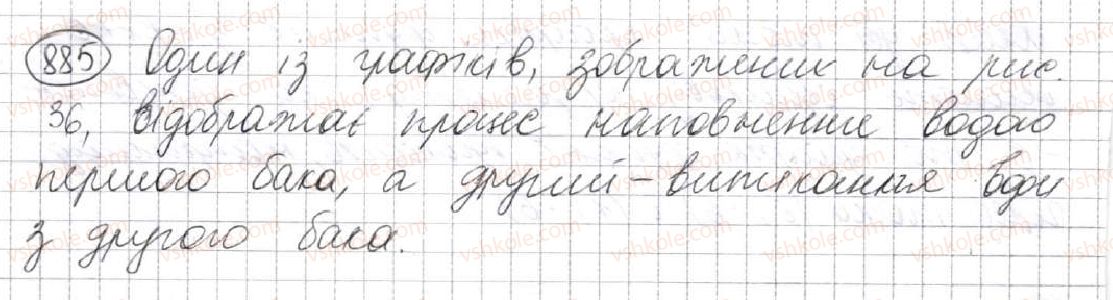 885 Один із графіків, зображених на рис.
36, відображає процес наповнення водою
першого бака, а другий – витікання води
з другого бака.